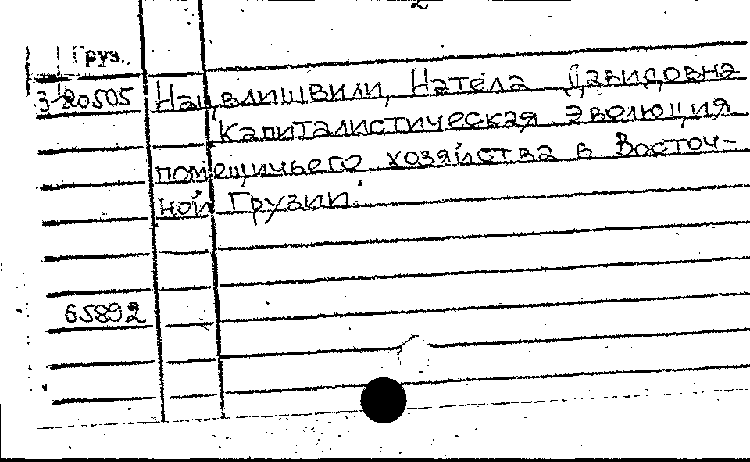 Груз.
3-20505 Нацвлишвили, Натела Давидовна
Капиталистическая эволюция
помещичьего хозяйства в Восточ-
ной Грузии.
65892